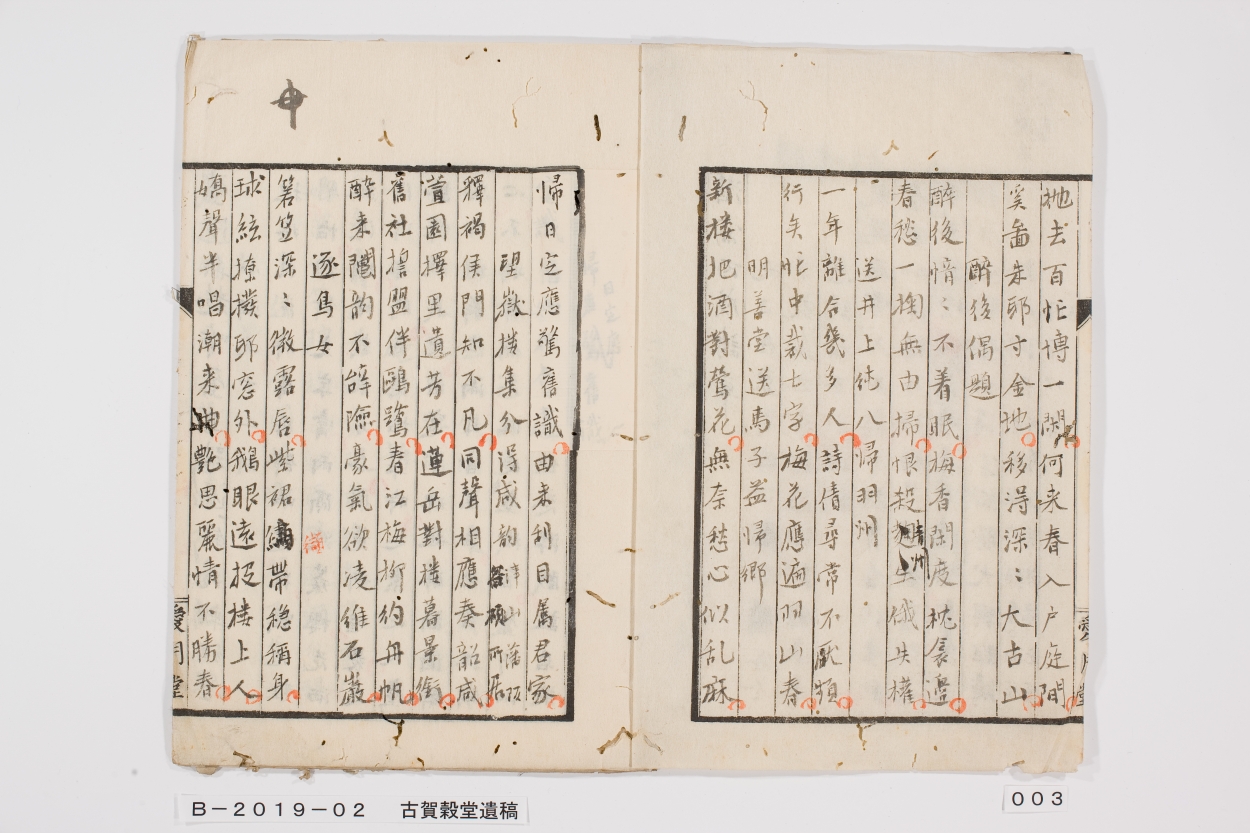 抛去百忙博一閑何来春入戸庭間
奚啻朱耶寸金地移得深〻大古山
醉後偶題
醉後惛〻不着眠梅香閑度枕衾邊
春愁一掬無由掃恨殺 生俄失權
送井上純八歸羽州
一年離合幾多人詩債尋常不厭頻
行矣忙中裁七字梅花應遍羽山春
明善堂送馬子益歸鄉
新楼把酒對鶯花無奈愁心似乱麻
歸日定應驚舊識由来刮目属君家
望嶽楼集分得咸韵 津山藩 所居
釋褐侯門知不凡同聲相應奏韶咸
萱園擇里遺芳在蓮岳對楼暮景銜
舊社 盟伴鷗鷺春江梅柳約舟帆
醉来鬪韵不辞險豪氣欲凌維石巖
逐鳥女
箬笠深〻微露唇紫裙 帶穏稱身
球絃撩撥 窓外鵝眼遠投楼上人
嬌聲半唱潮来曲艶思麗情不勝春
愛月堂
B－2019－02 古賀穀堂遺稿
003